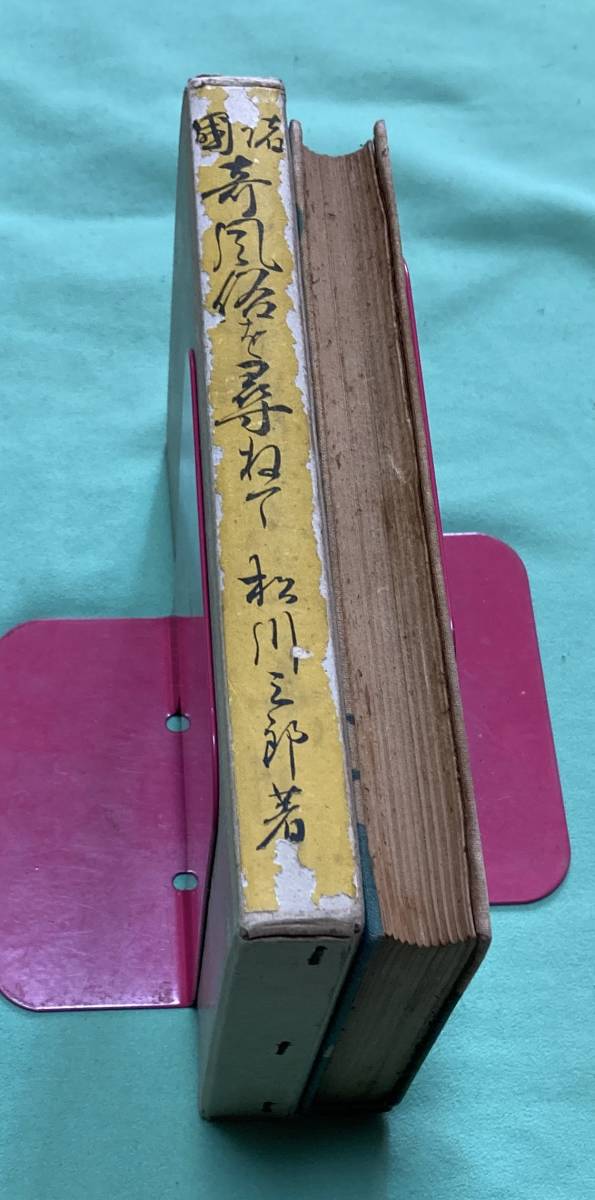 諸國
奇風俗を尋ねて 松川三郎著